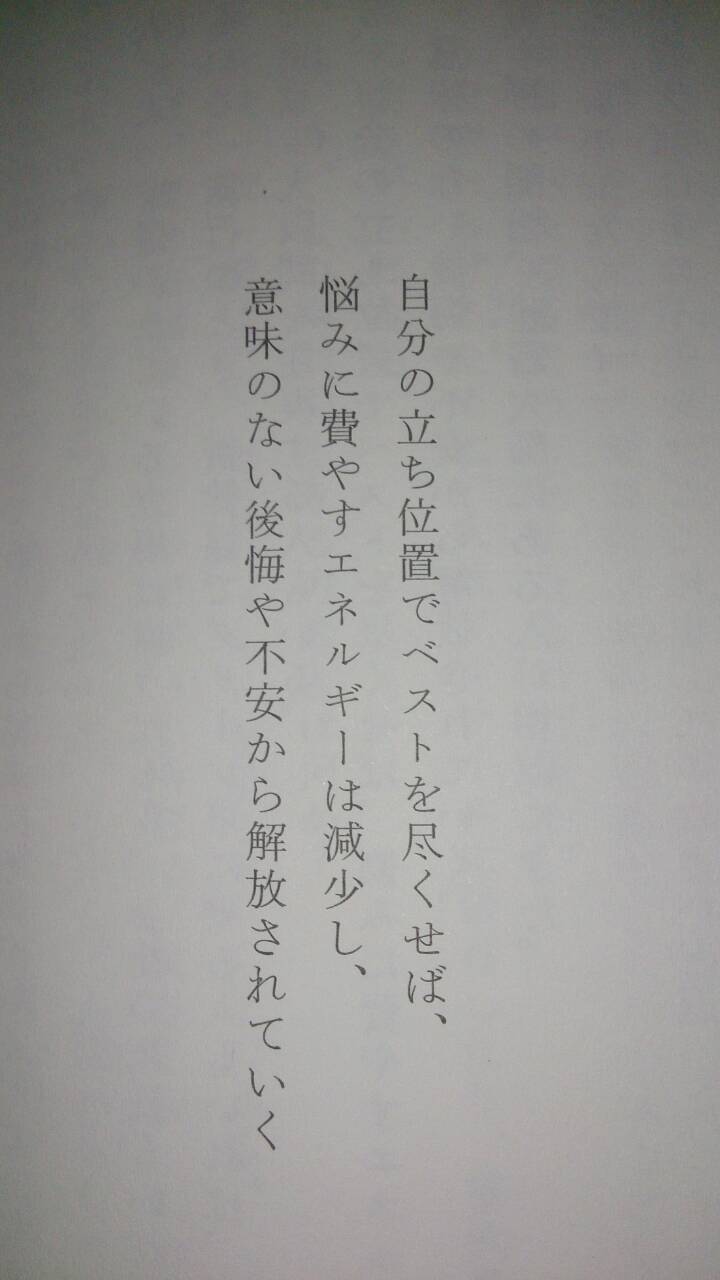 自分の立ち位置でベストを尽くせば、
悩みに費やすエネルギーは減少し、
意味のない後悔や不安から解放されていく